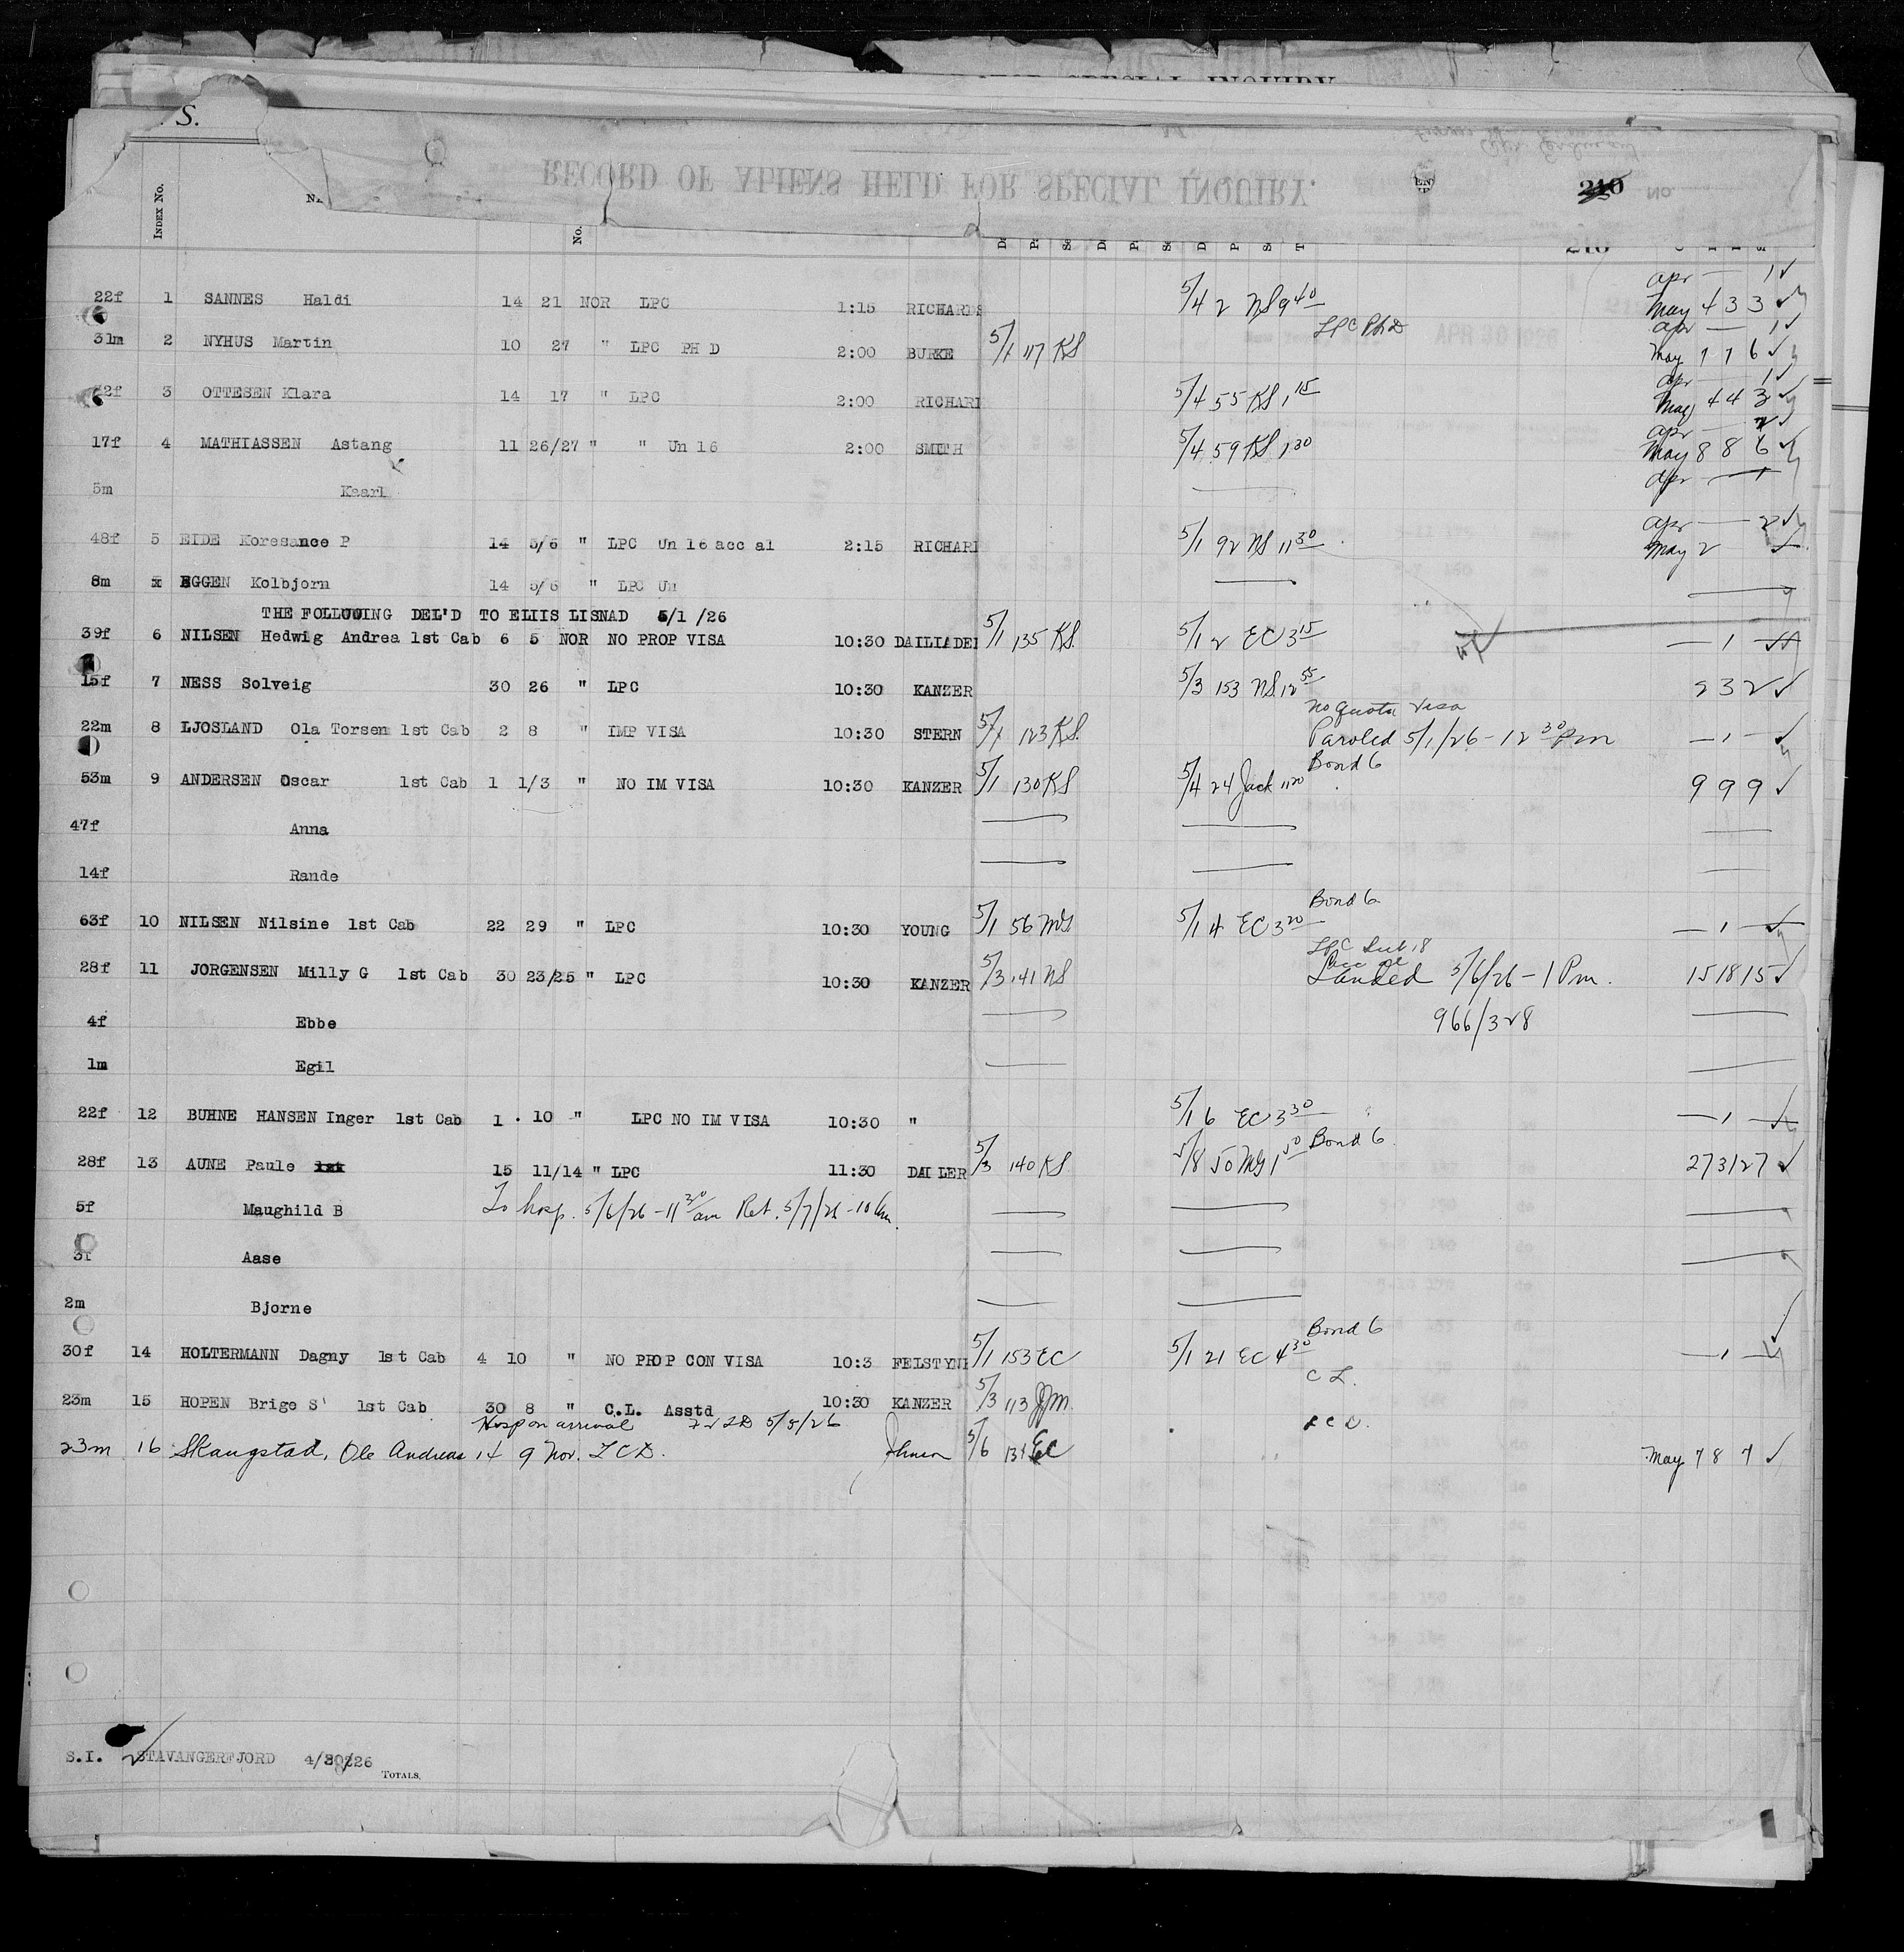 S.
RECORD OF ALIENS HELD FOR SPECIAL INQUIRY.
INDEX No.
No.
210
No.
APR 30 1926
22f 1 SANNES Haldi 14 21 NOR LPC 1:15 RICHARDS 5/4 2 NS 9 40 Apr — 1 ✓
May 4 3 3 ✓
LPC Ph D
31m 2 NYHUS Martin 10 27 " LPC PH D 2:00 BURKE 5/1 117 KS Apr — 1 ✓
May 7 7 6 ✓
22f 3 OTTESEN Klara 14 17 " LPC 2:00 RICHARD 5/4 55 KS 1 15 Apr — 1 ✓
May 4 4 3 ✓
17f 4 MATHIASSEN Astang 11 26/27 " " Un 16 2:00 SMITH 5/4 59 KS 1 30 Apr — 2 ✓
May 8 8 6 ✓
5m Kaarl Apr — 1
48f 5 EIDE Koresance P 14 5/6 " LPC Un 16 acc al 2:15 RICHARD 5/1 92 NS 11 30 Apr — 2 ✓
May 2 ✓
8m x EGGEN Kolbjorn 14 5/6 " LPC Un
THE FOLLOWING DEL'D TO ELIIS LISNAD 5/1 /26
39f 6 NILSEN Hedwig Andrea 1st Cab 6 5 NOR NO PROP VISA 10:30 DAILIADER 5/1 135 KS 5/1 2 EC 3 15 — 1 —
15f 7 NESS Solveig 30 26 " LPC 10:30 KANZER 5/3 153 NS 12 55 2 3 2 ✓
No Quota Visa
22m 8 LJOSLAND Ola Torsem 1st Cab 2 8 " IMP VISA 10:30 STERN 5/1 123 KS Paroled 5/1/26 - 12 30 Pm — 1 — ✓
Bond 6
53m 9 ANDERSEN Oscar 1st Cab 1 1/3 " NO IM VISA 10:30 KANZER 5/1 130 KS 5/4 24 Jack 11 20 9 9 9 ✓
47f Anna
14f Rande
Bond 6
63f 10 NILSEN Nilsine 1st Cab 22 29 " LPC 10:30 YOUNG 5/1 56 5/1 4 EC 3 20 — 1 — ✓
LPC
28f 11 JORGENSEN Milly G 1st Cab 30 23/25 " LPC 10:30 KANZER 5/3 141 NS Landed 5/6/26 - 1 Pm. 15 18 15 ✓
4f Ebbe 966/328
1m Egil
22f 12 BUHNE HANSEN Inger 1st Cab 1 . 10 " LPC NO IM VISA 10:30 " 5/1 6 EC 3 30 — 1 — ✓
Bond 6
28f 13 AUNE Paule 1st 15 11/14 " LPC 11:30 DAILER 5/3 140 KS 5/8 50 27 31 27 ✓
5f Maughild B To hosp. 5/6/26 - 11 30 am Ret. 5/7/26 - 10
3f Aase
2m Bjorne
Bond 6
30f 14 HOLTERMANN Dagny 1st Cab 4 10 " NO PROP CON VISA 10:3 FELSTYNE 5/1 153 EC 5/1 21 EC 4 30 — 1 — ✓
C L.
23m 15 HOPEN Brige S' 1st Cab 30 8 " C.L. Asstd 10:30 KANZER 5/3 113
Hosp on arrival 5/5/26 L C D.
23m 16 Skaugstad, Ole Andreas 14 9 Nor. L C D. Johnson 5/6 EC May 7 8 7 ✓
S.I. STAVANGERFJORD 4/30/26
TOTALS,